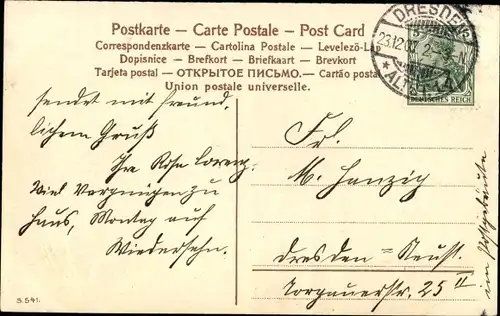 Postkarte – Carte Postale – Post Card
Correspondenzkarte – Cartolina Postale – Levelező-Lap
Dopisnice – Brefkort – Briefkaart – Brevkort
Tarjeta postal – ОТКРЫТОЕ ПИСЬМО. – Cartão postal
Union postale universelle.
DRESDEN
23.12.07
ALTST.
DEUTSCHES REICH
sendet mit freund-
lichem Gruß
Ihre Rosa Lorenz.
Viel Vergnügen zu
Haus, Montag auf
Wiedersehn.
Frl.
M. Hanzig
Dresden – Neust.
Torgauerstr. 25 II
im Postgebäude
S. 541.